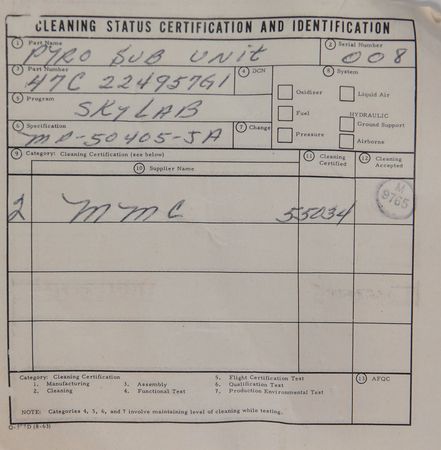 CLEANING STATUS CERTIFICATION AND IDENTIFICATION
1 Part Name 2 Serial Number
PYRO SUB UNIT 008
3 Part Number 4 DCN 8 System
47C 224957G1
Oxidizer Liquid Air
5 Program
SKYLAB
Fuel HYDRAULIC
Ground Support
6 Specification 7 Change
MP-50405-5A
Pressure Airborne
9 Category: Cleaning Certification (see below) 11 Cleaning Certified 12 Cleaning Accepted
10 Supplier Name
2 MMC 55034 M 9765
Category: Cleaning Certification 5. Flight Certification Test 13 AFQC
1. Manufacturing 3. Assembly 6. Qualification Test
2. Cleaning 4. Functional Test 7. Production Environmental Test
NOTE: Categories 4, 5, 6, and 7 involve maintaining level of cleaning while testing.
(8-63)